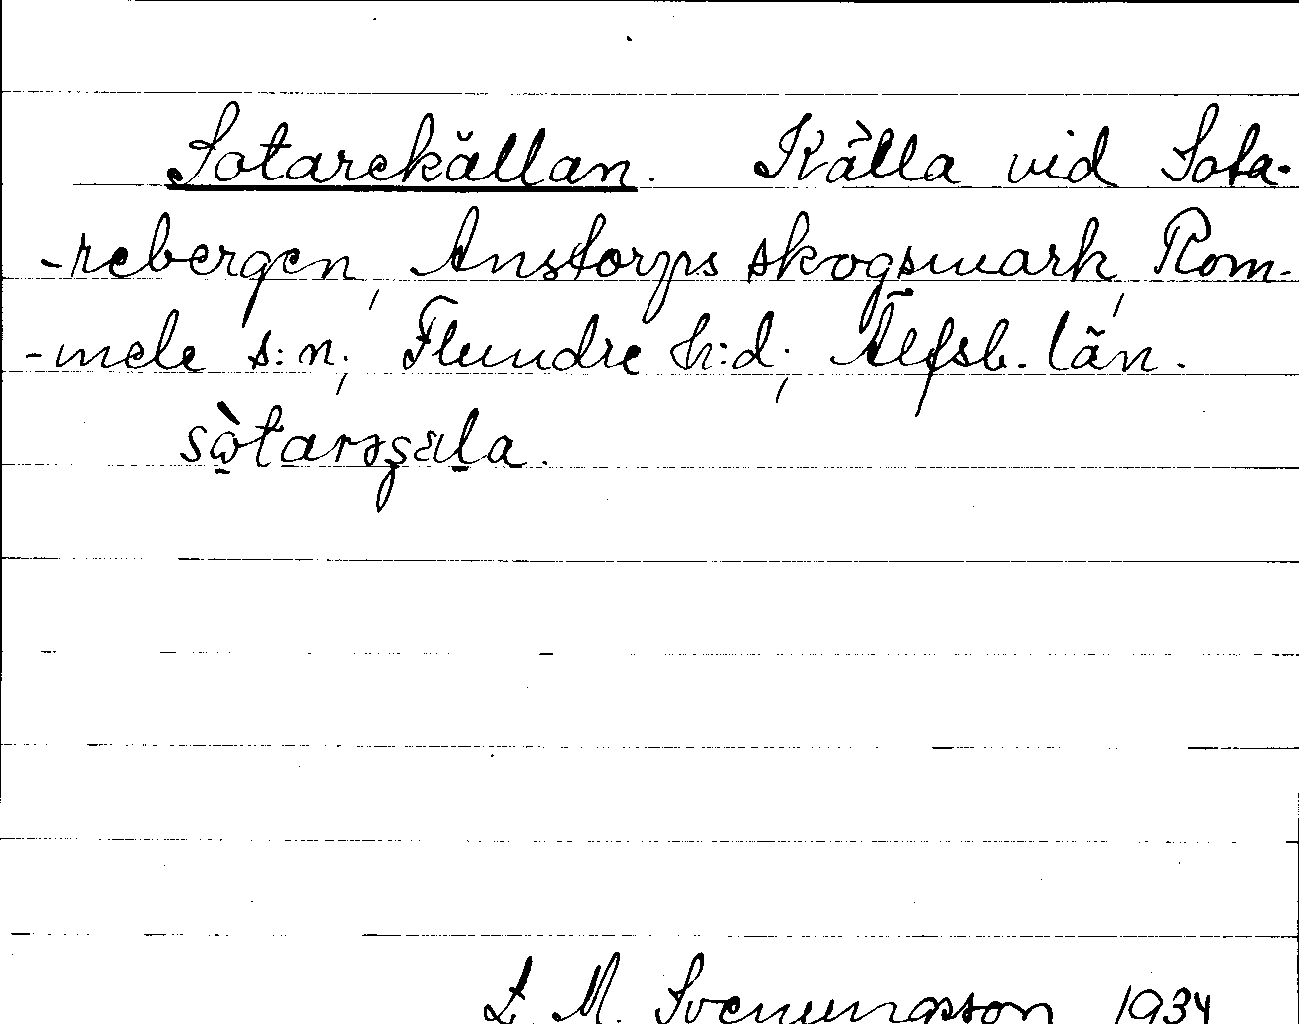 Sotarekällan. Källa vid Sota-
-rebergen, Anstorps skogsmark, Rom-
-mele s:n; Flundre h:d; Älfsb. län.
sὼtarəʂæla.
L. M. Svenungsson 1934